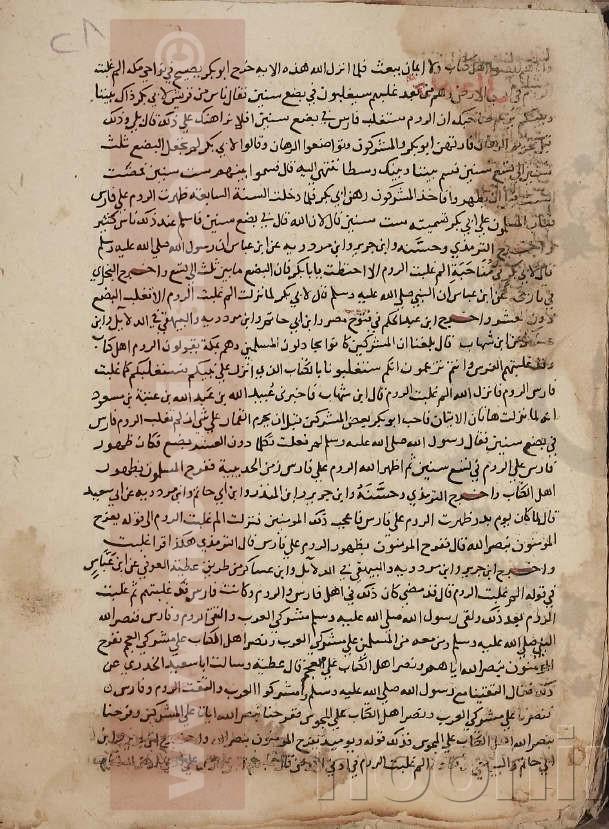 ولا ايمان ببعث فلما انزل الله هذه الاية خرج ابو بكر يصيح في نواحي مكة الم غلبت
الروم في ادنى الارض وهم من بعد غلبهم سيغلبون في بضع سنين فقال ناس من قريش لابي بكر ذاك بيننا
وبينكم يزعم صاحبك ان الروم ستغلب فارس في بضع سنين افلا نراهنك على ذلك قال بلى وذلك
قبل تحريم الرهان فارتهن ابو بكر والمشركون وتواضعوا الرهان وقالوا لابي بكر لم تجعل البضع ثلث
سنين الى تسع سنين فسم بيننا وبينك وسطا تنتهي اليه قال فسموا بينهم ست سنين فمضت
الست قبل ان يظهروا فاخذ المشركون رهن ابي بكر فلما دخلت السنة السابعة ظهرت الروم على فارس
فعاب المسلمون على ابي بكر تسميته ست سنين قال لان الله قال في بضع سنين فاسلم عند ذلك ناس كثير
واخرج الترمذي وحسنه وابن جرير وابن مردويه عن ابن عباس ان رسول الله صلى الله عليه وسلم
قال لابي بكر في مناحبة الم غلبت الروم الا احتطت يا ابا بكر فان البضع ما بين ثلث الى تسع واخرج البخاري
في تاريخه عن ابن عباس ان النبي صلى الله عليه وسلم قال لابي بكر لما نزلت الم غلبت الروم الا تغلب البضع
دون العشر واخرج ابن عبد الحكم في فتوح مصر وابن ابي حاتم وابن مردويه والبيهقي في الدلايل وابن
عساكر عن ابن شهاب قال بلغنا ان المشركين كانوا يجادلون المسلمين وهم بمكة يقولون الروم اهل كتاب
وقد غلبتهم الفرس وانتم تزعمون انكم ستغلبونا بالكتاب الذي انزل على نبيكم فسنغلبكم كما غلبت
فارس الروم فانزل الله الم غلبت الروم قال ابن شهاب فاخبرني عبيد الله بن عبد الله بن عتبة بن مسعود
انه لما نزلت هاتان الايتان ناحب ابو بكر بعض المشركين قبل ان يحرم القمار على شيء ان لم تغلب الروم فارس
في بضع سنين فقال رسول الله صلى الله عليه وسلم لم فعلت فكلما دون العشر بضع فكان ظهور
فارس على الروم في تسع سنين ثم اظهر الله الروم على فارس زمن الحديبية ففرح المسلمون بظهور
اهل الكتاب واخرج الترمذي وحسنه وابن جرير وابن المنذر وابن ابي حاتم وابن مردويه عن ابي سعيد
قال لما كان يوم بدر ظهرت الروم على فارس فاعجب ذلك المومنين فنزلت الم غلبت الروم الى قوله يفرح
المومنون بنصر الله قال ففرح المومنون بظهور الروم على فارس قال الترمذي هكذا اقرا غلبت
واخرج ابن جرير وابن مردويه والبيهقي في الدلايل وابن عساكر من طريق عطية العوفي عن ابن عباس
في قوله الم غلبت الروم قال قد مضى كان ذلك في اهل فارس والروم وكانت فارس قد غلبتهم ثم غلبت
الروم بعد ذلك ولقي رسول الله صلى الله عليه وسلم مشركي العرب والتقى الروم وفارس فنصر الله
النبي صلى الله عليه وسلم ومن معه من المسلمين على مشركي العرب ونصر اهل الكتاب على مشركي العجم ففرح
المومنون بنصر الله اياهم ونصر اهل الكتاب على العجم قال عطية وسالت ابا سعيد الخدري عن
ذلك فقال التقينا مع رسول الله صلى الله عليه وسلم ومشركوا العرب والتقت الروم وفارس
فنصرنا على مشركي العرب ونصر اهل الكتاب على المجوس ففرحنا بنصر الله ايانا على المشركين وفرحنا
بنصر الله اهل الكتاب على المجوس فذلك قوله ويومئذ يفرح المومنون بنصر الله واخرج
ابي حاتم والبيهقي الم غلبت الروم في ادنى الارض قال